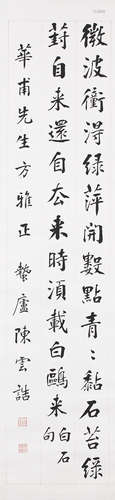 微波衝得綠萍開數點青々黏石苔綠
葑自来還自去来時須載白鷗来 白石句
華甫先生方雅正 蟄廬陳雲誥